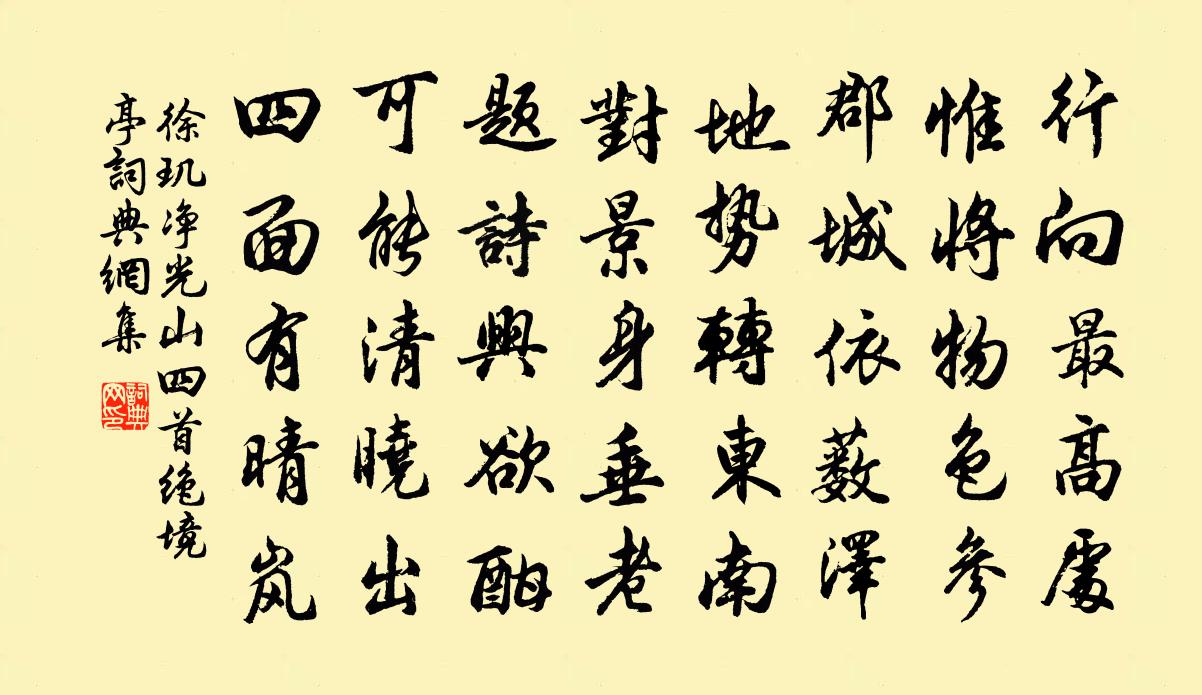 行向最高處
惟將物色參
郡城依薮澤
地势轉東南
對景身垂老
題詩興欲酣
可能清曉出
四面有晴岚
徐玑净光山四首绝境
亭詞典網集
詞典網印